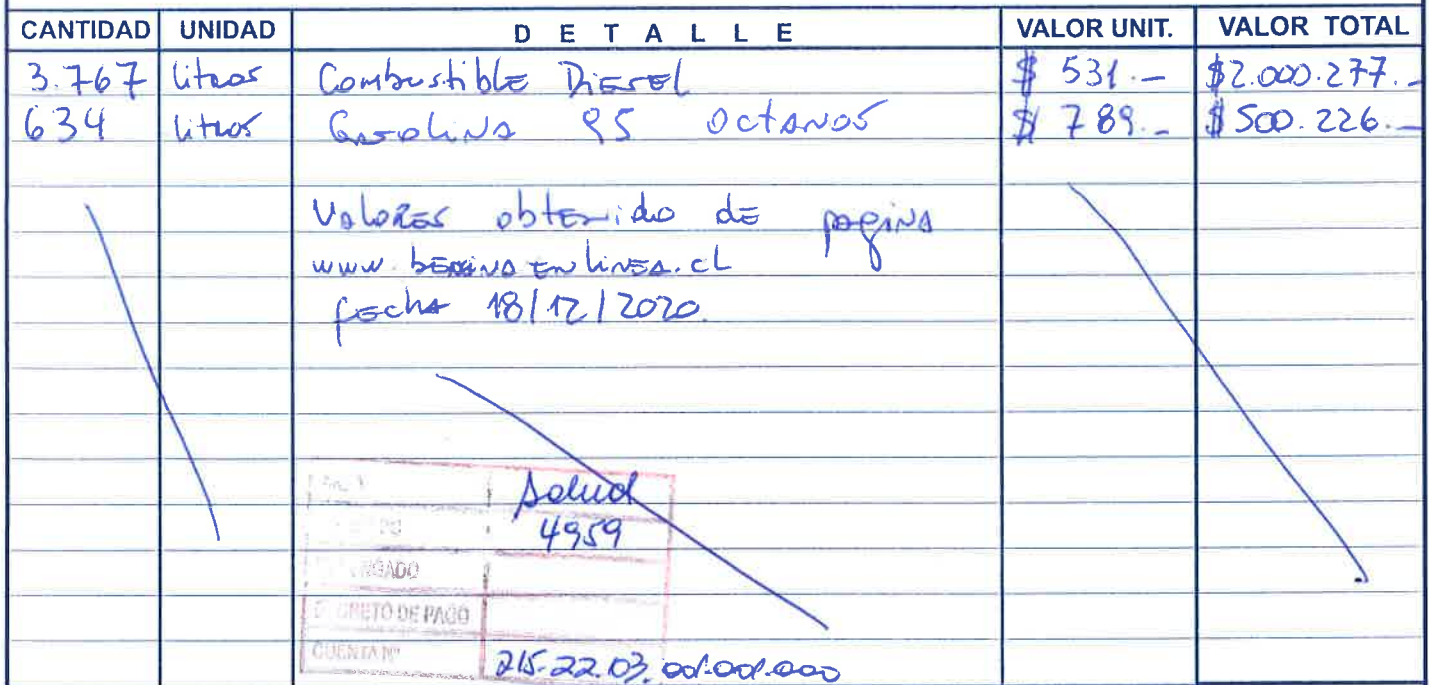 CANTIDAD UNIDAD DETALLE VALOR UNIT. VALOR TOTAL
3.767 litros Combustible Diesel $ 531.- $2.000.277.-
634 litros Gasolina 95 octanos $ 789.- $500.226.-
Valores obtenido de pagina
www.bencinaenlinea.cl
fecha 18/12/2020.
Salud
4959
DECRETO DE PAGO
CUENTA Nº 215.22.03.001.001.000